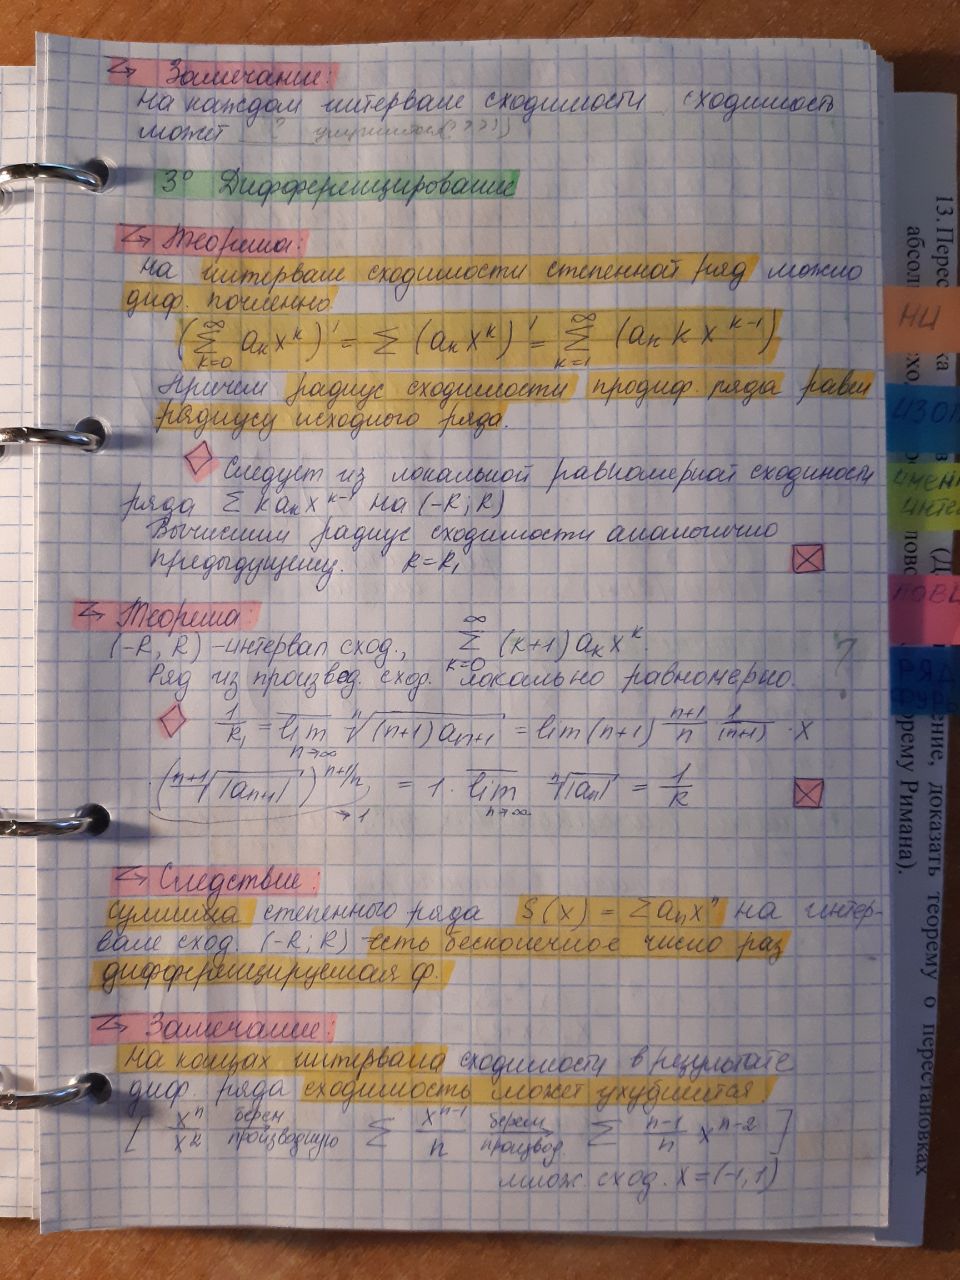 Замечание:
на каждом интервале сходимости сходимость
может
3° Дифференцирование
Теорема:
на интервале сходимости степенной ряд можно
диф. почленно.
(∑_{k=0}^{∞} aₖx^k)' = ∑ (aₖx^k)' = ∑_{k=1}^{∞} (aₖ k x^{k-1})
Причем радиус сходимости продиф. ряда равен
радиусу исходного ряда.
Следует из локальной равномерной сходимости
ряда ∑ kaₖx^{k-1} на (-R; R)
Вычислим радиус сходимости аналогично
предыдущему. R=R₁
Теорема:
(-R, R) -интервал сход., ∑_{k=0}^{∞} (k+1)aₖx^k.
Ряд из производ. сход. локально равномерно. ?
1/R₁ = lim_{n→∞} ⁿ√((n+1)aₙ₊₁) = lim (n+1) (n+1)/n 1/(n+1) · X
·(ⁿ⁺¹√|aₙ₊₁|)^{n+1/n} →1 = 1 · lim_{n→∞} ⁿ√|aₙ| = 1/R
Следствие:
сумма степенного ряда S(x) = ∑aₙxⁿ на интер-
вале сход. (-R; R) есть бесконечное число раз
дифференцируемая ф.
Замечание:
на концах интервала сходимости в результате
диф. ряда сходимость может ухудшится.
[ xⁿ/x² берем производную ∑ x^{n-1}/n берем производ. ∑ (n-1)/n x^{n-2} ]
множ. сход. x = (-1, 1)
НИ
ИЗОП
ИМЕН
ИНТЕ
ПОВЕ
РЯД
ФУР
13. Перес
абсол
ение, доказать теорему о перестановках
орему Римана).